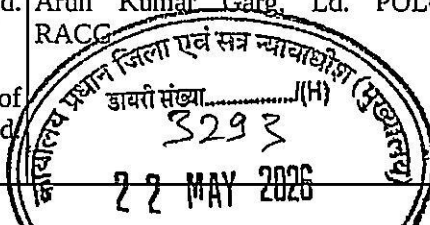 d. Arun Kumar Garg, Ld. POL
RACG
of
d.
कार्यालय प्रधान जिला एवं सत्र न्यायाधीश (मुख्यालय)
डायरी संख्या............/(H)
3293
22 MAY 2026